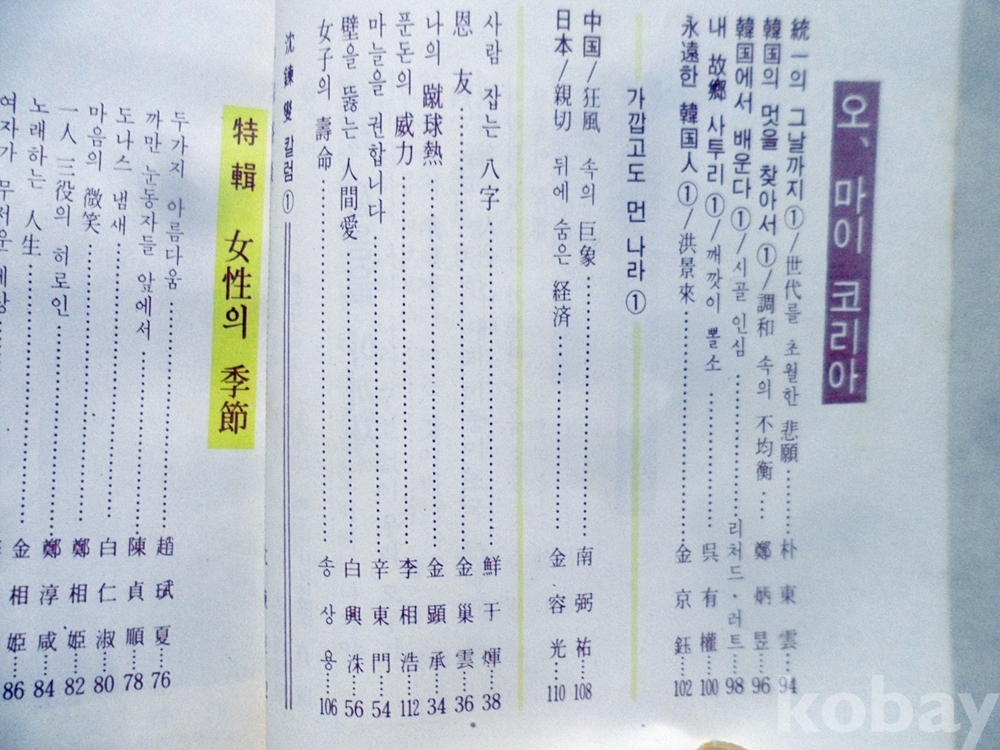 오, 마이 코리아
統一의 그날까지①/世代를 초월한 悲願……朴東雲……94
韓国의 멋을 찾아서①/調和 속의 不均衡……鄭炳昱……96
韓国에서 배운다①/시골 인심……리처드·러트……98
내 故鄕 사투리①/깨깟이 뽈소……吳有權……100
永遠한 韓国人①/洪景來……金京鈺……102
가깝고도 먼 나라①
中国/狂風 속의 巨象……南弼祐……108
日本/親切 뒤에 숨은 経済……金容光……110
사람 잡는 八字……鮮于煇……38
恩友……金巢雲……36
나의 蹴球熱……金顕承……34
푼돈의 威力……李相浩……112
마늘을 권합니다……辛東門……54
壁을 뚫는 人間愛……白興洙……56
女子의 壽命……송상용……106
沈鍊燮 칼럼①
特輯 女性의 季節
두가지 아름다움……趙珷夏……76
까만 눈동자들 앞에서……陳貞順……78
도나스 냄새……白仁淑……80
마음의 微笑……鄭相姫……82
一人三役의 히로인……鄭淳咸……84
노래하는 人生……金相姫……86
여자가 무서운
kobay